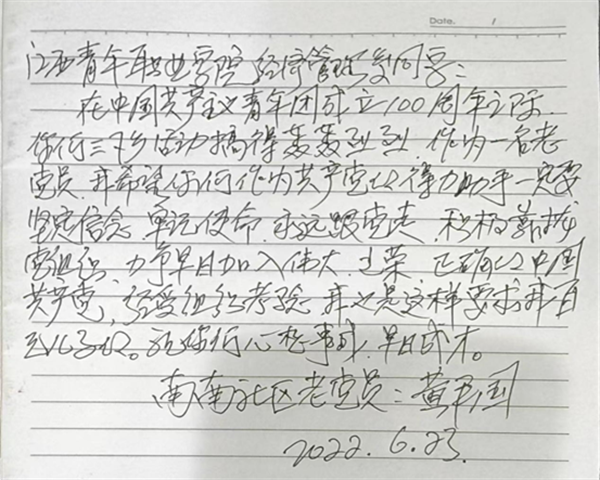 Date. /
江西青年职业学院经济管理系同学：
在中国共产主义青年团成立100周年之际
你们三下乡活动搞得轰轰烈烈.作为一名老
党员.我希望你们作为共产党的得力助手一定要
坚定信念.牢记使命.永远跟党走.积极靠拢
党组织.力争早日加入伟大、光荣、正确的中国
共产党,经受组织考验.我也是这样要求我自
己的。祝你们心想事成.早日成才。
南南社区老党员：黄国
2022.6.23.